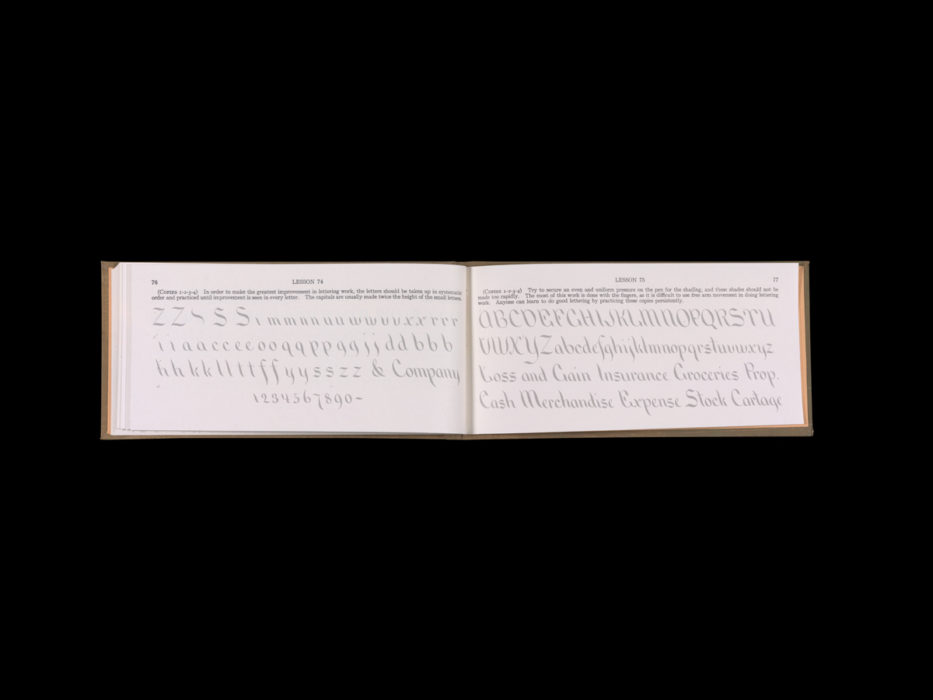 76
LESSON 74
(COPIES 1-2-3-4) In order to make the greatest improvement in lettering work, the letters should be taken up in systematic
order and practiced until improvement is seen in every letter. The capitals are usually made twice the height of the small letters.
Z Z S S ı m m n n u n w w v v v x x r r r
i i a a c c e e e o o q q p p g g j j d d b b b
h h k k l l t t f f y y s s z z & Company
1234567890
LESSON 75
77
(COPIES 1-2-3-4) Try to secure an even and uniform pressure on the pen for the shading, and these shades should not be
made too rapidly. The most of this work is done with the fingers, as it is difficult to use free arm movement in doing lettering
work. Anyone can learn to do good lettering by practicing these copies persistently.
ABCDEFGHIJKLMNOPQRSTU
VWXYZabcdefghijklmnopqrstuvwxyz
Loss and Gain Insurance Groceries Prop.
Cash Merchandise Expense Stock Cartage